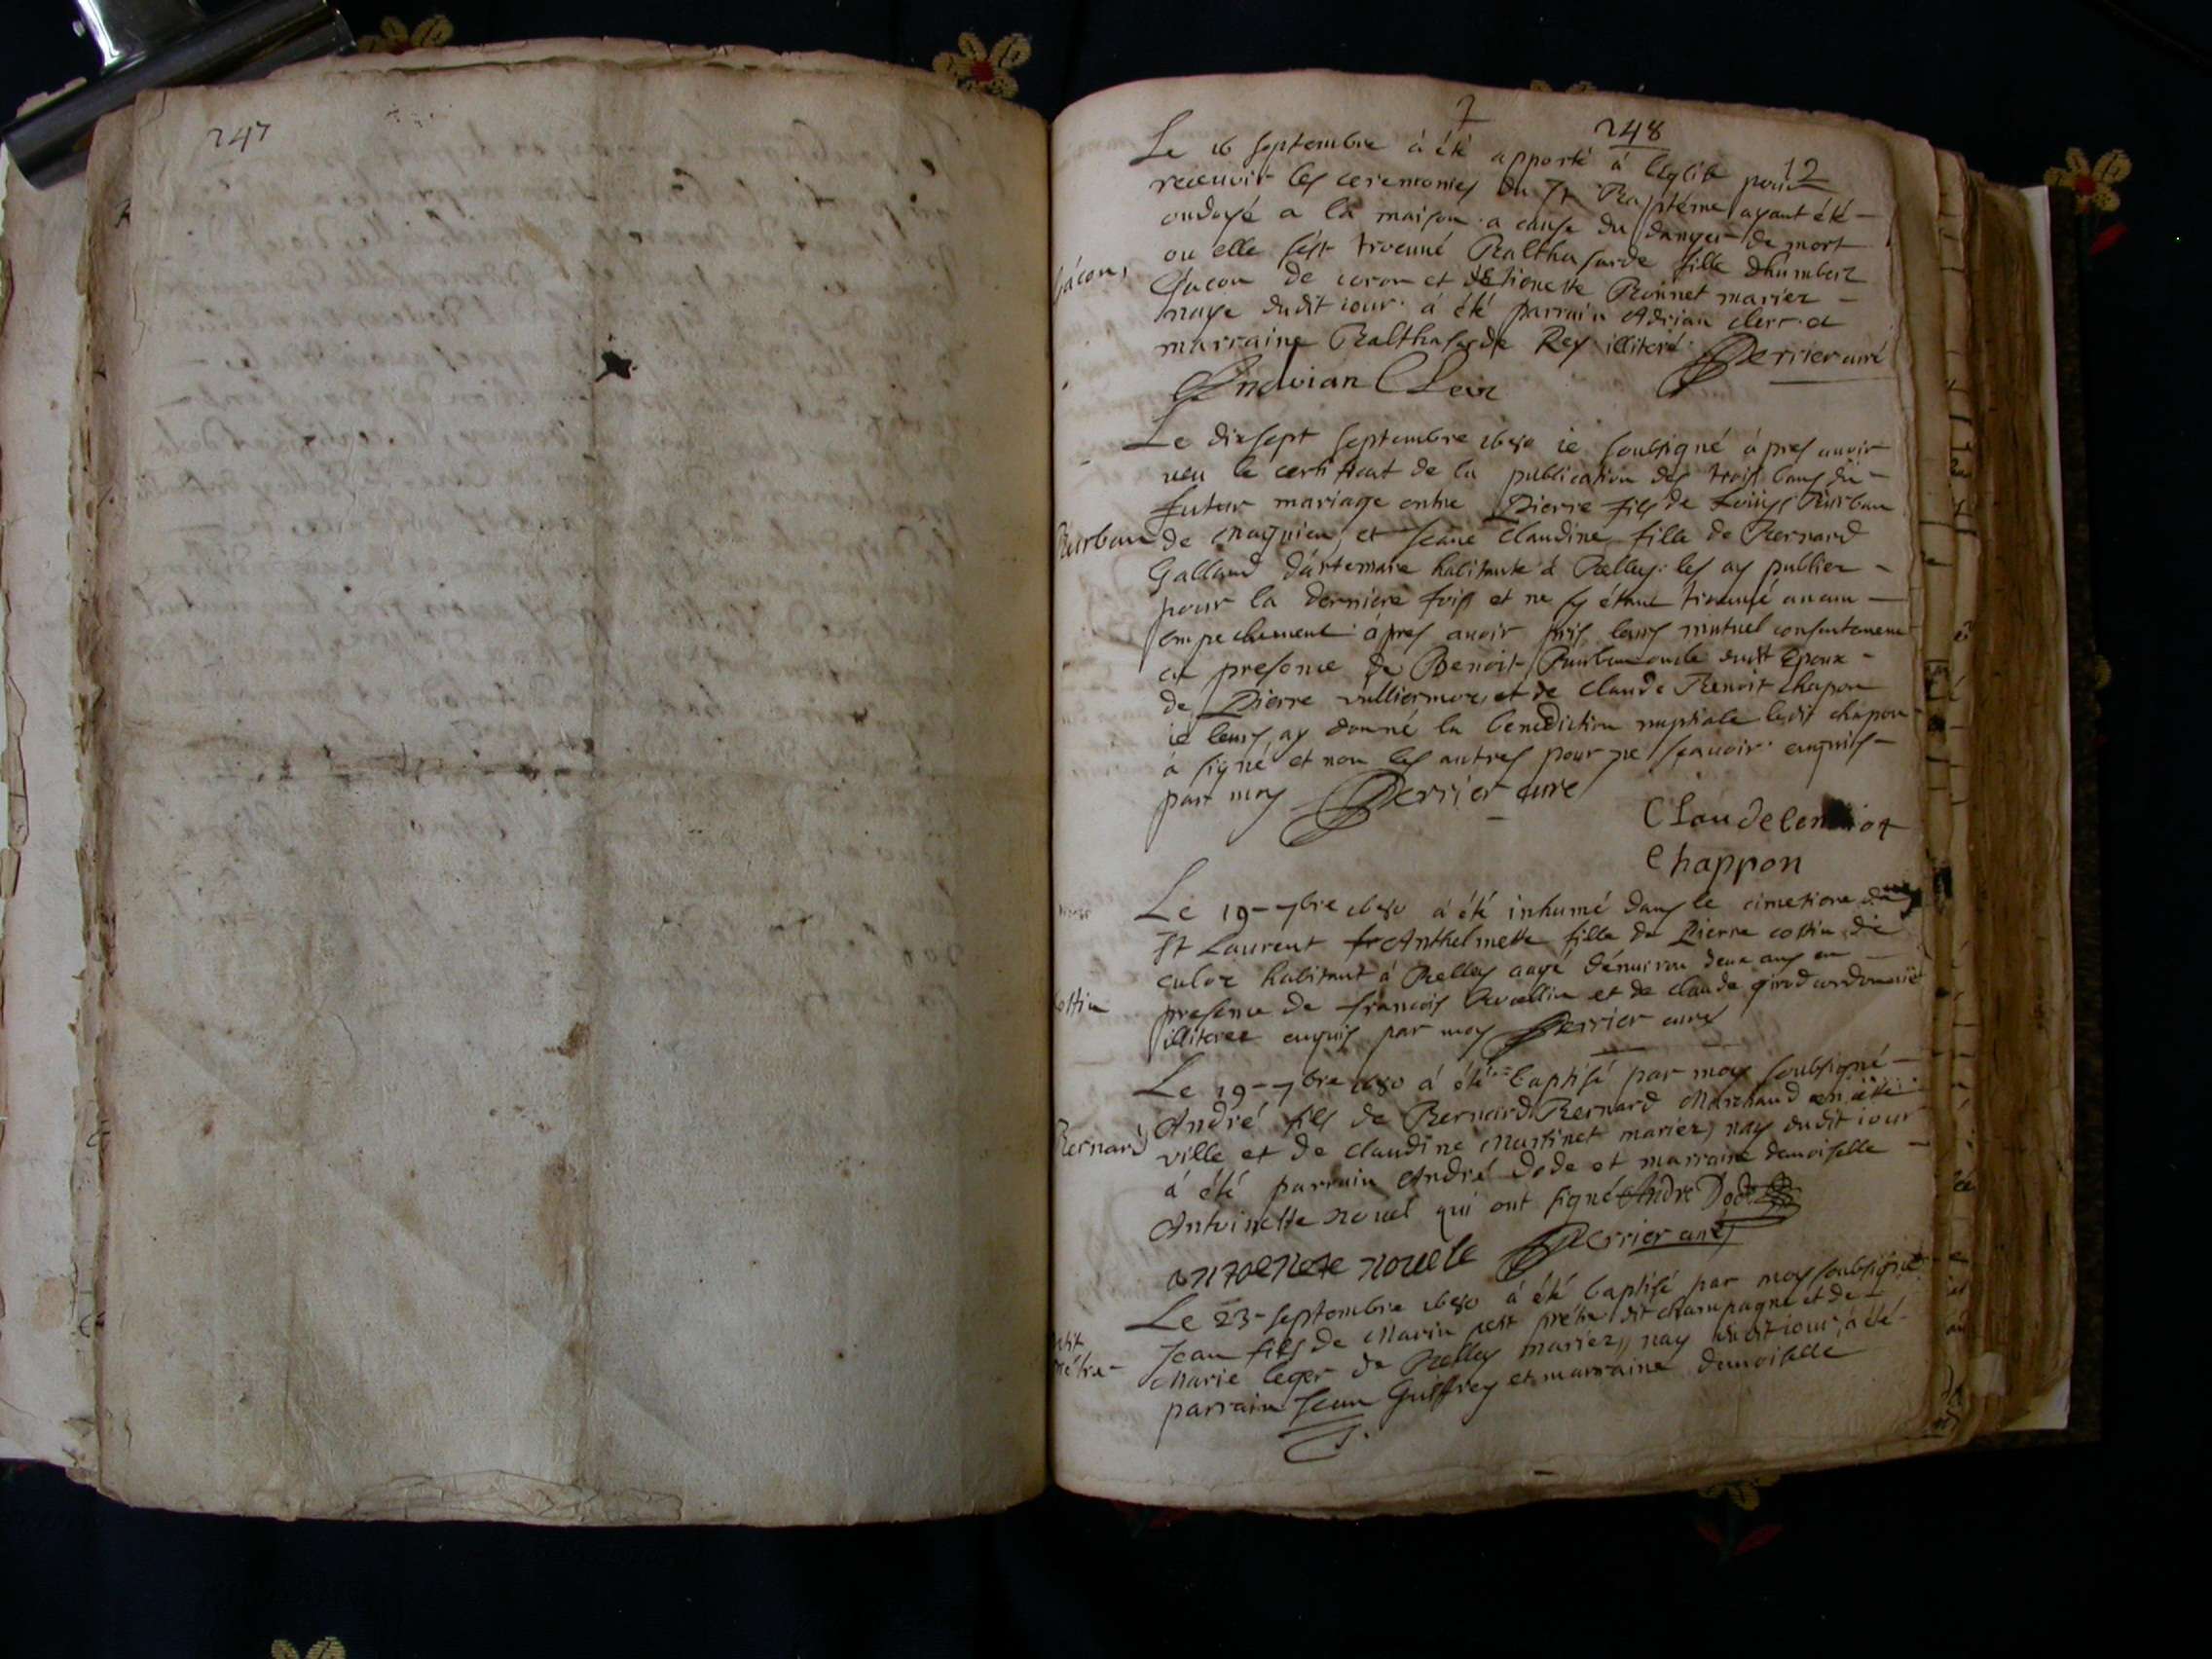 247
248
12
Le 16 septembre à été apporté à l'eglise pour
receuoir les ceremonies du St Baptéme ayant été
ondoyé a la maison a cause du danger de mort
ou elle s'est trouuué Balthasarde fille d'humbert
Gacon de coron et Bonnet mariez
naye dudit iour à été parrain Adrian clerc et
marraine Balthasarde Rey illiteré Perrier curé
Andrian Clerc
Le dixsept septembre 1680 ie soubsigné àpres auoir
veu le certificat de la publication des trois bans du
futur mariage entre Pierre fils de Louys Burban
Burban
de Magnieu et Jeane Claudine fille de Bernard
Galland d'artemare habitante à Belley les ay publiez
pour la derniere fois et ne sy étant trouué aucun
empechement àpres auoir pris leurs mutuel consentement
en presence de Benoit Burban oncle dudit Epoux
de Pierre vulliermoz et de Claude Benoit chapon
ie leurs ay donné la benediction nuptiale ledit chapon
à signé et non les autres pour ne sçauoir enquis
part moy Perrier curé
Claude
Chappon
Le 19 7bre 1680 à été inhumé dans le cimetiere de
St Laurent Anthelmette fille de Pierre costin de
culoz habitant à Belley aagé d'enuiron deux ans en
costin
presence de francois et de claude girod cordonnié
illiterez enquis par moy Perrier curé
Le 19 7bre 1680 à été baptisé par moy soubsigné
André fils de Bernard Bernard Marchand en cette
Bernard
ville et de claudine Martinet mariez nay dudit iour
à été parrain André Dode et marraine demoiselle
Antoinette nouel qui ont signé Andre Dode
antoenete nouele Perrier curé
Le 23 septembre 1680 à été baptisé par moy soubsigné
Jean fils de Marin petit prétre dit champagne et de
petit
prétre
Marie leger de Belley mariez nay dudit iour à été
parrain Jean Guiffrey et marraine demoiselle